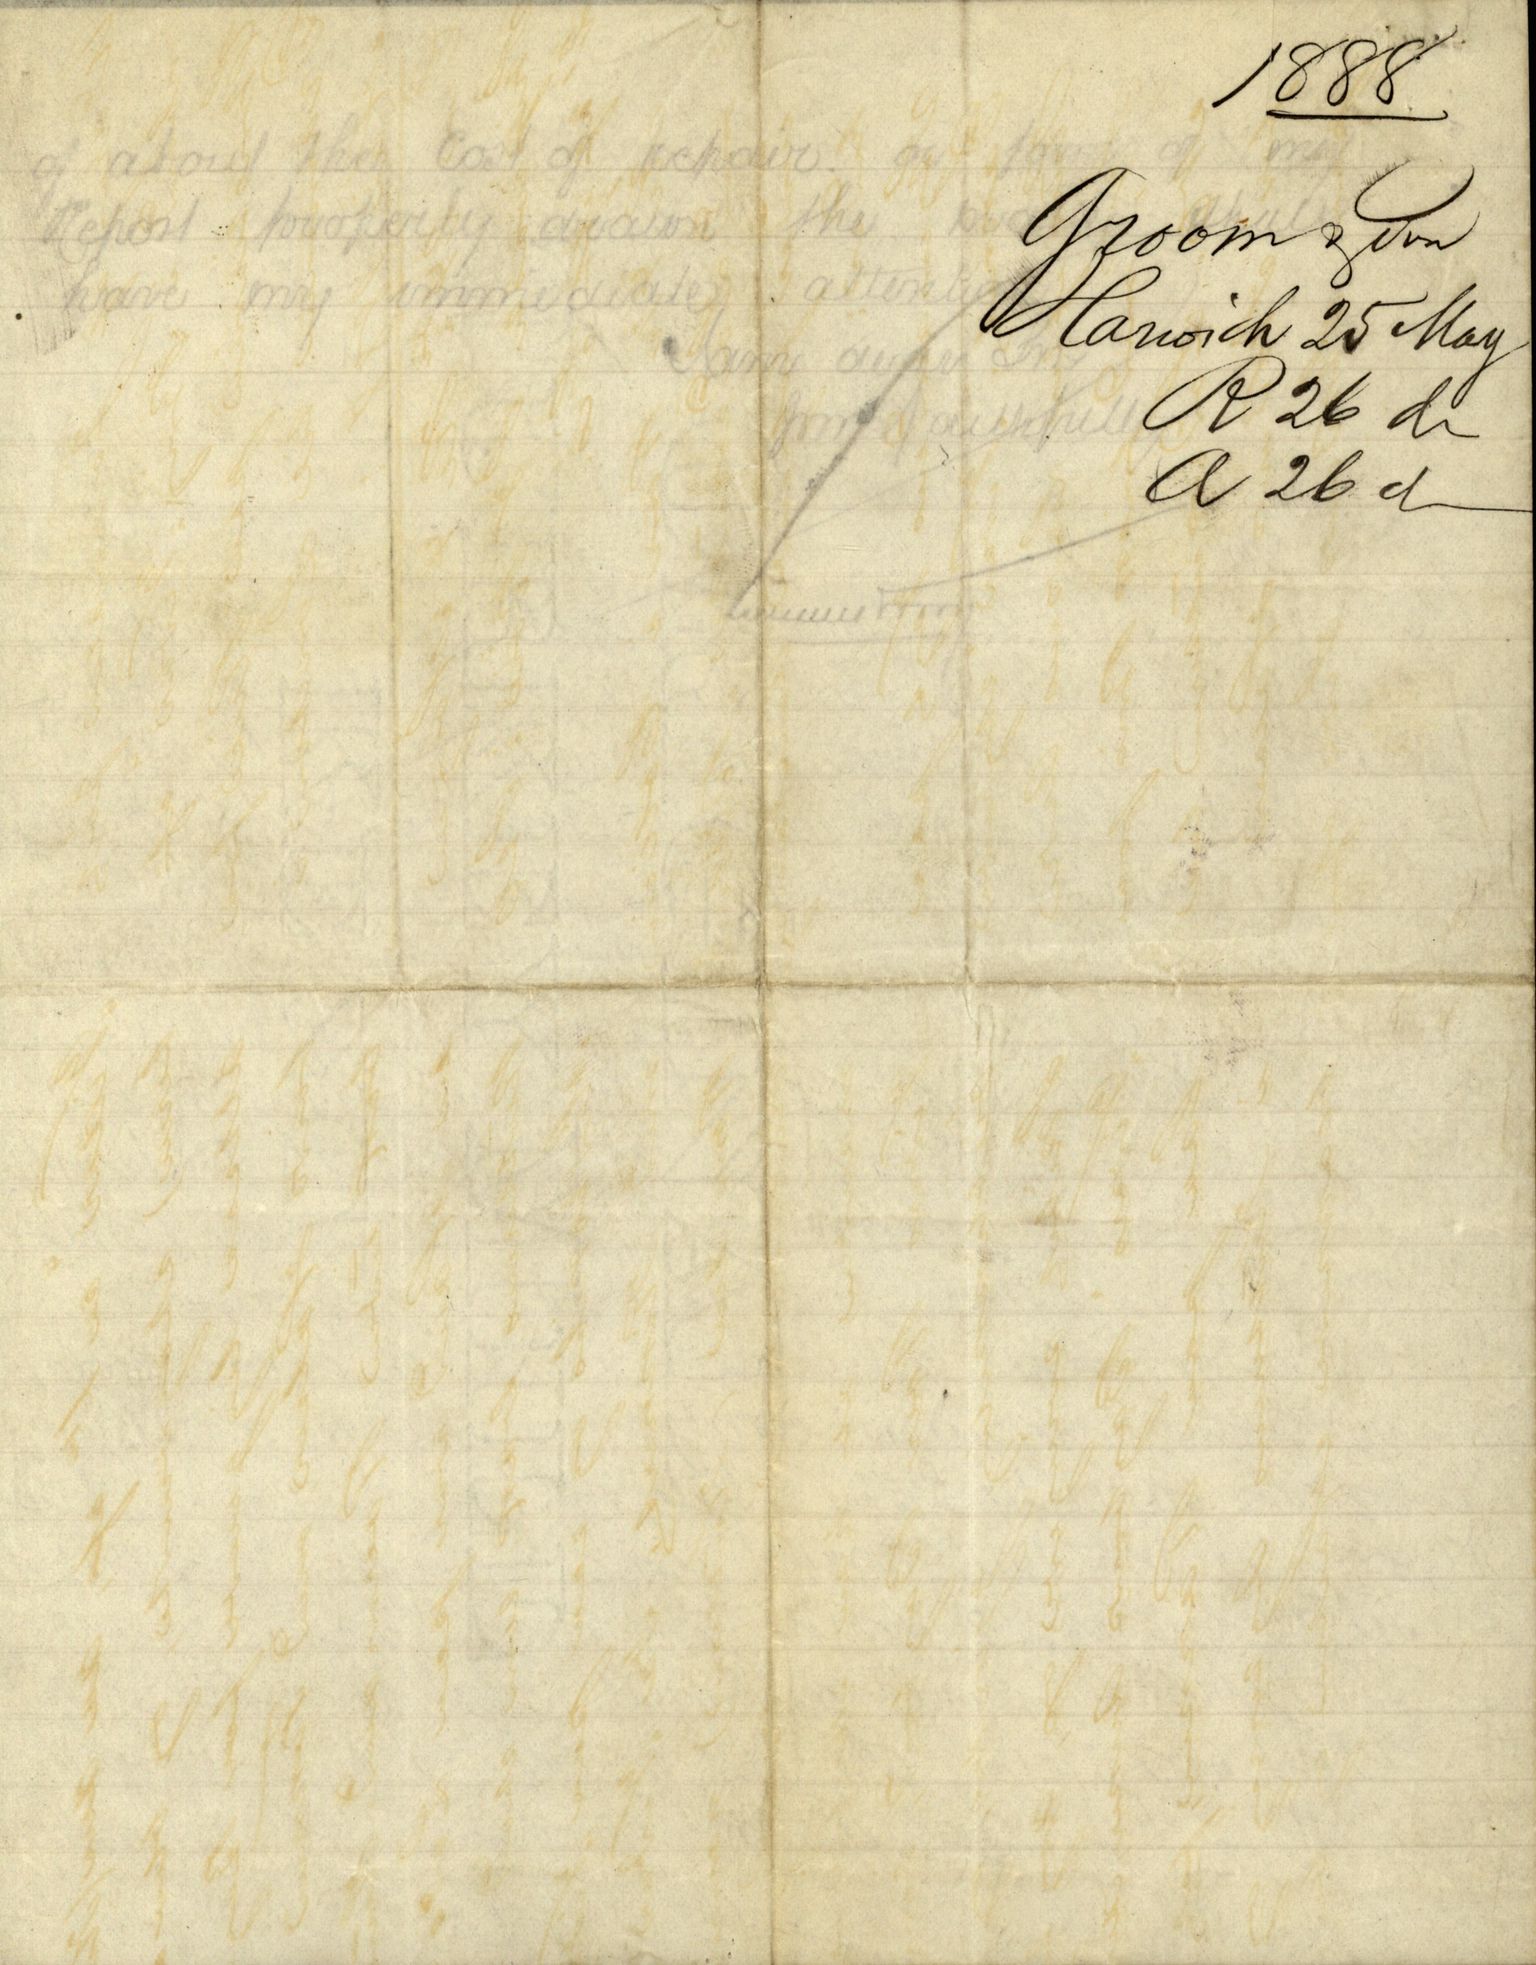 1888
Groom & Son
Harwich 25 May
R 26 do
A 26 d
of about the Cost of repair. or form of my
Report properly drawn the
have my immediate attention
I am dear Sir
Yours faithfully